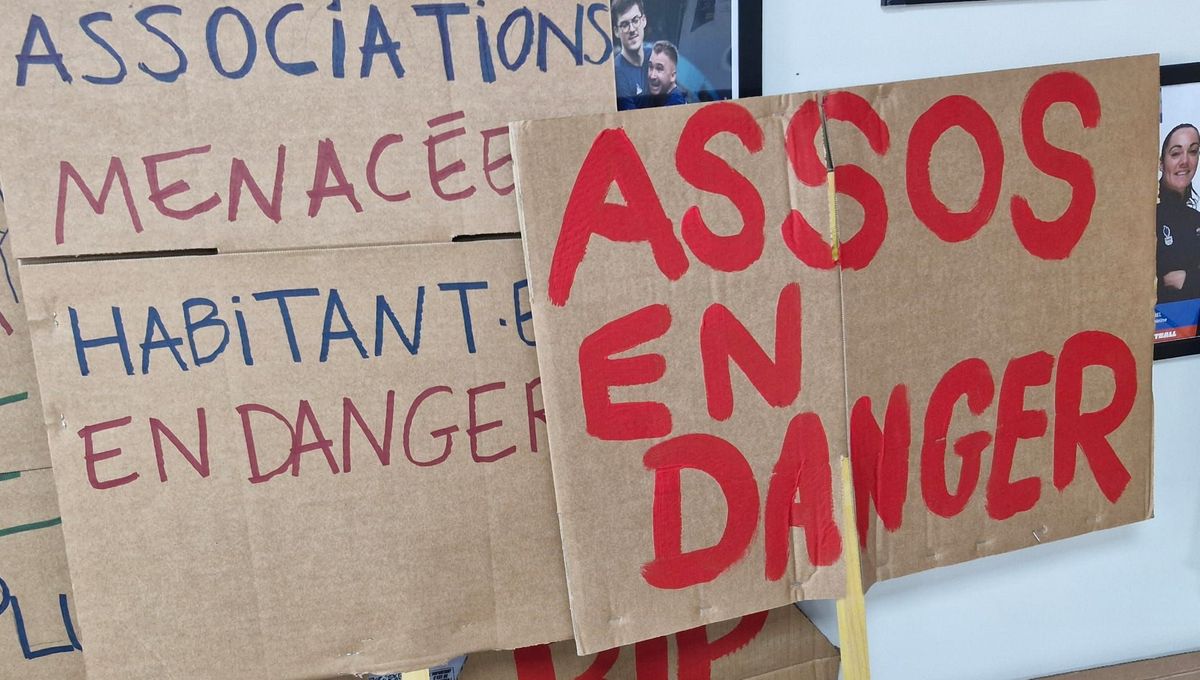 ASSOCIATIONS
MENACÉE
HABITANT·E
EN DANGER
ASSOS
EN
DANGER
RIP